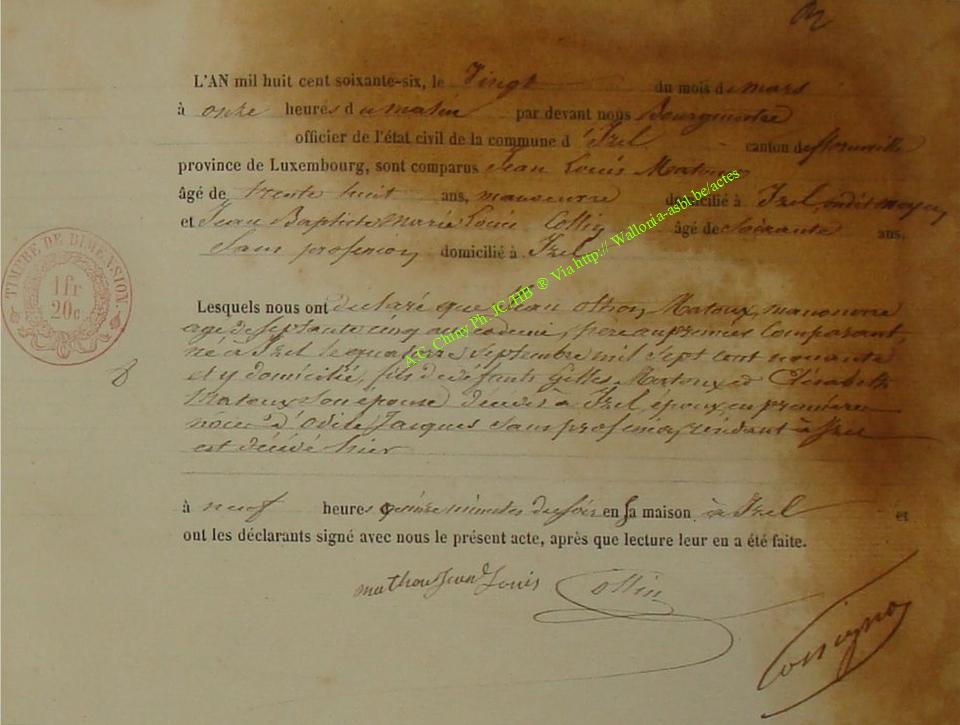 L'AN mil huit cent soixante-six, le Vingt du mois de mars
à onze heures du matin par devant nous Bourgmestre
officier de l'état civil de la commune d'Izel canton de florenville
province de Luxembourg, sont comparus Jean Louis Matoux
âgé de trente huit ans, manoeuvre domicilié à Izel, 
et Jean Baptiste marie Louis Collin âgé de soixante ans.
sans profession domicilié à Izel
TIMBRE DE DIMENSION.
1 fr
20 c.
Lesquels nous ont declaré que Jean Matoux, manoeuvre
agé de septante cinq ans et demi, père au premier Comparant,
né à Izel le quatorze Septembre mil Sept cent nonante
et y domicilié, fils de défunts Gilles Matoux et Elisabeth
Matoux son épouse décédés à Izel, époux en premières
noces d'Odile Jacques sans profession, résidant à Izel
est décédé hier
à neuf heures quinze minutes du soir en sa maison à Izel et
ont les déclarants signé avec nous le présent acte, après que lecture leur en a été faite.
mathou Jean Louis Collin
A.C. Chiny Ph. JC /HB ® Via http:// Wallonia-asbl.be/actes